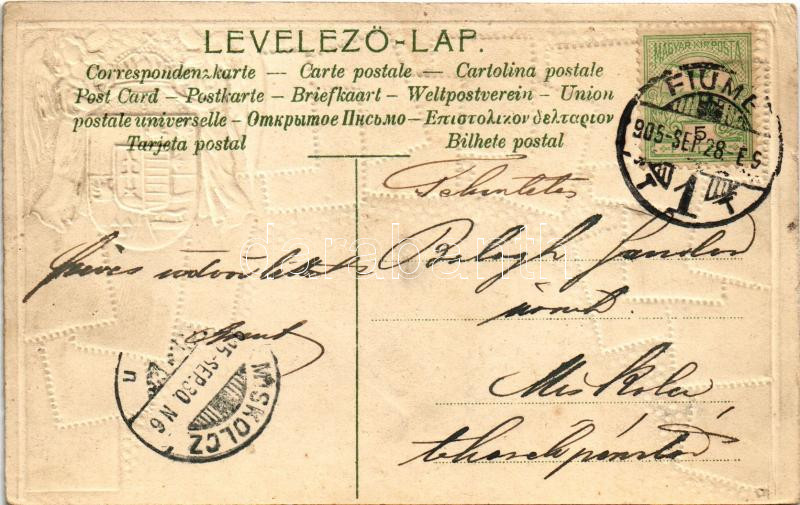 LEVELEZŐ-LAP.
Correspondenzkarte — Carte postale — Cartolina postale
Post Card – Postkarte – Briefkaart – Weltpostverein – Union
postale universelle – Открытое Письмо – Επιστολικον δελταριον
Tarjeta postal Bilhete postal
MAGYAR KIR. POSTA
FIUME
905-SEP. 28 - E 5
1
Tekintetes
Balogh Sandor
úrnak.
Miskolcz
szives üdvözlet
MISKOLCZ
905-SEP. 30. N 6
darabanth